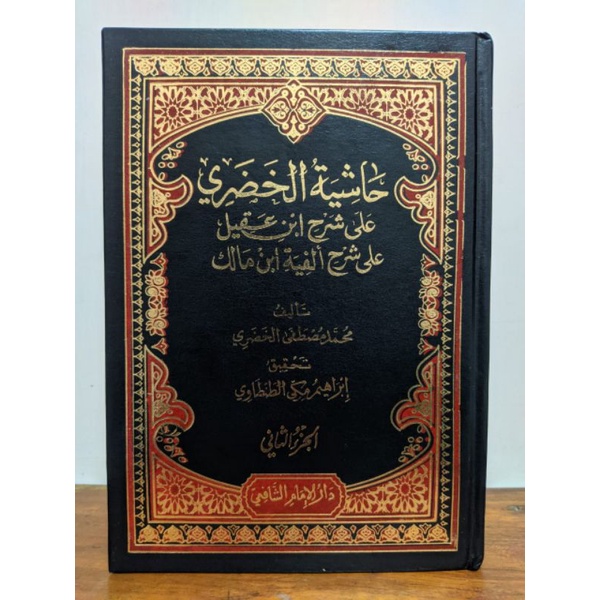 حَاشِيَةُ الخَضَرِي
عَلى شَرْحِ ابْنِ عَقِيل
عَلى شَرْحِ ألفِيَةِ ابْنِ مَالِك
تَأليفُ
مُحَمَّد مُصْطَفَى الخَضَرِي
تَحْقِيق
إبْرَاهِيمُ مَكِّي الطَنْطَاوِي
الجُزءُ الثَّانِي
دَارُ الإِمَامِ الشَّافِعِي